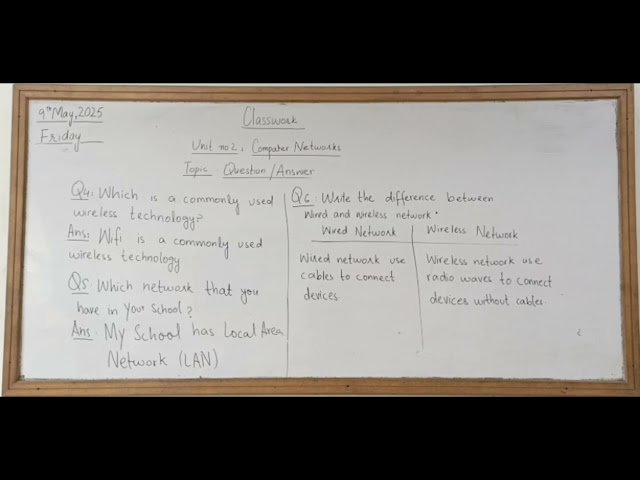 9th May, 2025
Friday
Classwork
Unit no 2, Computer Networks
Topic Question/Answer
Q4: Which is a commonly used
wireless technology?
Ans: Wifi is a commonly used
wireless technology
Q5: Which network that you
have in your School?
Ans: My School has Local Area
Network (LAN)
Q6: Write the difference between
Wired and wireless network.
Wired Network
Wireless Network
Wired network use
cables to connect
devices
Wireless network use
radio waves to connect
devices without cables